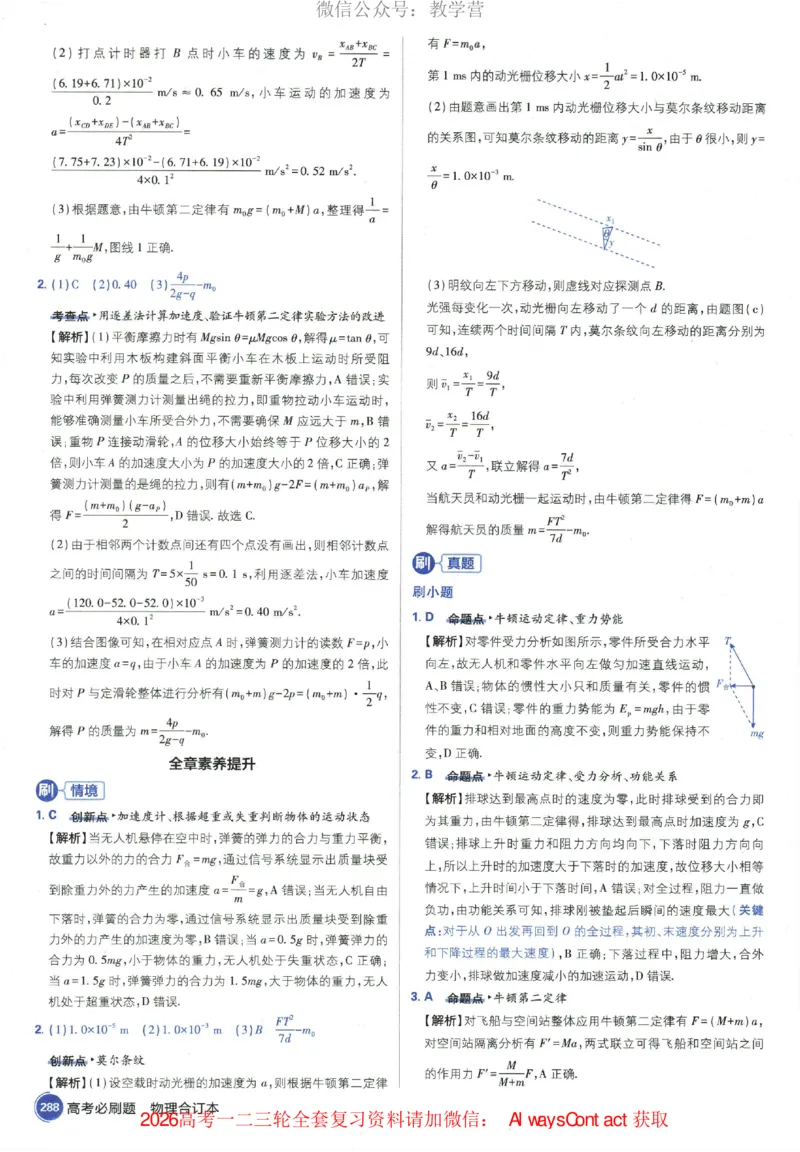 微信公众号：教学营
(2) 打点计时器打 B 点时小车的速度为 v_B = (x_AB+x_BC)/2T =
(6.19+6.71)×10⁻²/0.2 m/s ≈ 0.65 m/s, 小车运动的加速度为
a = [(x_CD+x_DE)-(x_AB+x_BC)]/4T² =
[(7.75+7.23)×10⁻²-(6.71+6.19)×10⁻²]/(4×0.1²) m/s²=0.52 m/s².
(3)根据题意,由牛顿第二定律有 m₀g=(m₀+M)a,整理得 1/a =
1/g + 1/(m₀g) M,图线 1 正确.
2. (1)C (2)0.40 (3) 4p/(2g-q) -m₀
考查点 ▸ 用逐差法计算加速度、验证牛顿第二定律实验方法的改进
【解析】(1)平衡摩擦力时有 Mgsin θ=μMgcos θ,解得 μ=tan θ,可
知实验中利用木板构建斜面平衡小车在木板上运动时所受阻
力,每次改变 P 的质量之后,不需要重新平衡摩擦力,A 错误;实
验中利用弹簧测力计测量出绳的拉力,即重物拉动小车运动时,
能够准确测量小车所受合外力,不需要确保 M 应远大于 m,B 错
误;重物 P 连接动滑轮,A 的位移大小始终等于 P 位移大小的 2
倍,则小车 A 的加速度大小为 P 的加速度大小的 2 倍,C 正确;弹
簧测力计测量的是绳的拉力,则有(m+m₀)g-2F=(m+m₀)a_P,解
得 F= (m+m₀)(g-a_P)/2 ,D 错误. 故选 C.
(2)由于相邻两个计数点间还有四个点没有画出,则相邻计数点
之间的时间间隔为 T=5× 1/50 s=0.1 s,利用逐差法,小车加速度
a= (120.0-52.0-52.0)×10⁻³/(4×0.1²) m/s²=0.40 m/s².
(3)结合图像可知,在相对应点 A 时,弹簧测力计的读数 F=p,小
车的加速度 a=q,由于小车 A 的加速度为 P 的加速度的 2 倍,此
时对 P 与定滑轮整体进行分析有(m₀+m)g-2p=(m₀+m)· 1/2 q,
解得 P 的质量为 m= 4p/(2g-q) -m₀.
全章素养提升
刷 情境
1. C 创新点 ▸ 加速度计、根据超重或失重判断物体的运动状态
【解析】当无人机悬停在空中时,弹簧的弹力的合力与重力平衡,
故重力以外的力的合力 F合=mg,通过信号系统显示出质量块受
到除重力外的力产生的加速度 a= F合/m =g,A 错误;当无人机自由
下落时,弹簧的合力为零,通过信号系统显示出质量块受到除重
力外的力产生的加速度为零,B 错误;当 a=0.5g 时,弹簧弹力的
合力为 0.5mg,小于物体的重力,无人机处于失重状态,C 正确;
当 a=1.5g 时,弹簧弹力的合力为 1.5mg,大于物体的重力,无人
机处于超重状态,D 错误.
2. (1)1.0×10⁻⁵ m (2)1.0×10⁻³ m (3)B FT²/7d -m₀
创新点 ▸ 莫尔条纹
【解析】(1)设空载时动光栅的加速度为 a,则根据牛顿第二定律
有 F=m₀a,
第 1 ms 内的动光栅位移大小 x= 1/2 at²=1.0×10⁻⁵ m.
(2)由题意画出第 1 ms 内动光栅位移大小与莫尔条纹移动距离
的关系图,可知莫尔条纹移动的距离 y= x/sin θ ,由于 θ 很小,则 y=
x/θ =1.0×10⁻³ m.
x₁
θ
y
(3)明纹向左下方移动,则虚线对应探测点 B.
光强每变化一次,动光栅向左移动了一个 d 的距离,由题图(c)
可知,连续两个时间间隔 T 内,莫尔条纹向左移动的距离分别为
9d、16d,
则 v̄₁= x₁/T = 9d/T ,
v̄₂= x₂/T = 16d/T ,
又 a= (v̄₂-v̄₁)/T ,联立解得 a= 7d/T² ,
当航天员和动光栅一起运动时,由牛顿第二定律得 F=(m₀+m)a
解得航天员的质量 m= FT²/7d -m₀.
刷 真题
刷小题
1. D 命题点 ▸ 牛顿运动定律、重力势能
【解析】对零件受力分析如图所示,零件所受合力水平
向左,故无人机和零件水平向左做匀加速直线运动,
A、B 错误;物体的惯性大小只和质量有关,零件的惯
性不变,C 错误;零件的重力势能为 E_p=mgh,由于零
件的重力和相对地面的高度不变,则重力势能保持不
变,D 正确.
T
F合
mg
2. B 命题点 ▸ 牛顿运动定律、受力分析、功能关系
【解析】排球达到最高点时的速度为零,此时排球受到的合力即
为其重力,由牛顿第二定律得,排球达到最高点时加速度为 g,C
错误;排球上升时重力和阻力方向均向下,下落时阻力方向向
上,所以上升时的加速度大于下落时的加速度,故位移大小相等
情况下,上升时间小于下落时间,A 错误;对全过程,阻力一直做
负功,由功能关系可知,排球刚被垫起后瞬间的速度最大(关键
点:对于从 O 出发再回到 O 的全过程,其初、末速度分别为上升
和下降过程的最大速度),B 正确;下落过程中,阻力增大,合外
力变小,排球做加速度减小的加速运动,D 错误.
3. A 命题点 ▸ 牛顿第二定律
【解析】对飞船与空间站整体应用牛顿第二定律有 F=(M+m)a,
对空间站隔离分析有 F′=Ma,两式联立可得飞船和空间站之间
的作用力 F′= M/(M+m) F,A 正确.
288 高考必刷题 物理合订本
2026高考一二三轮全套复习资料请加微信： AlwaysContact 获取